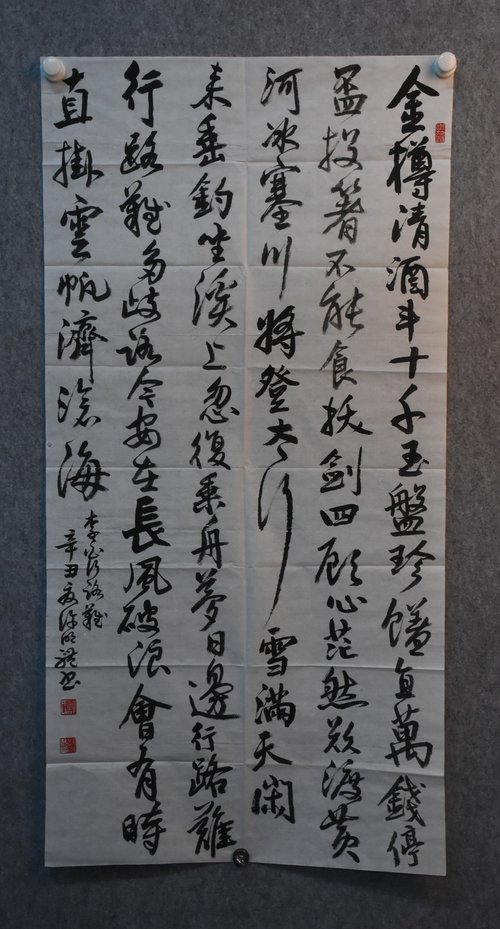 金樽清酒斗十千玉盤珍饈直萬錢停
盃投箸不能食拔劍四顧心茫然欲渡黃
河冰塞川將登太行雪滿天閑
來垂釣坐溪上忽復乘舟夢日邊行路難
行路難多歧路今安在長風破浪會有時
直掛雲帆濟滄海
李白行路難
辛丑夏